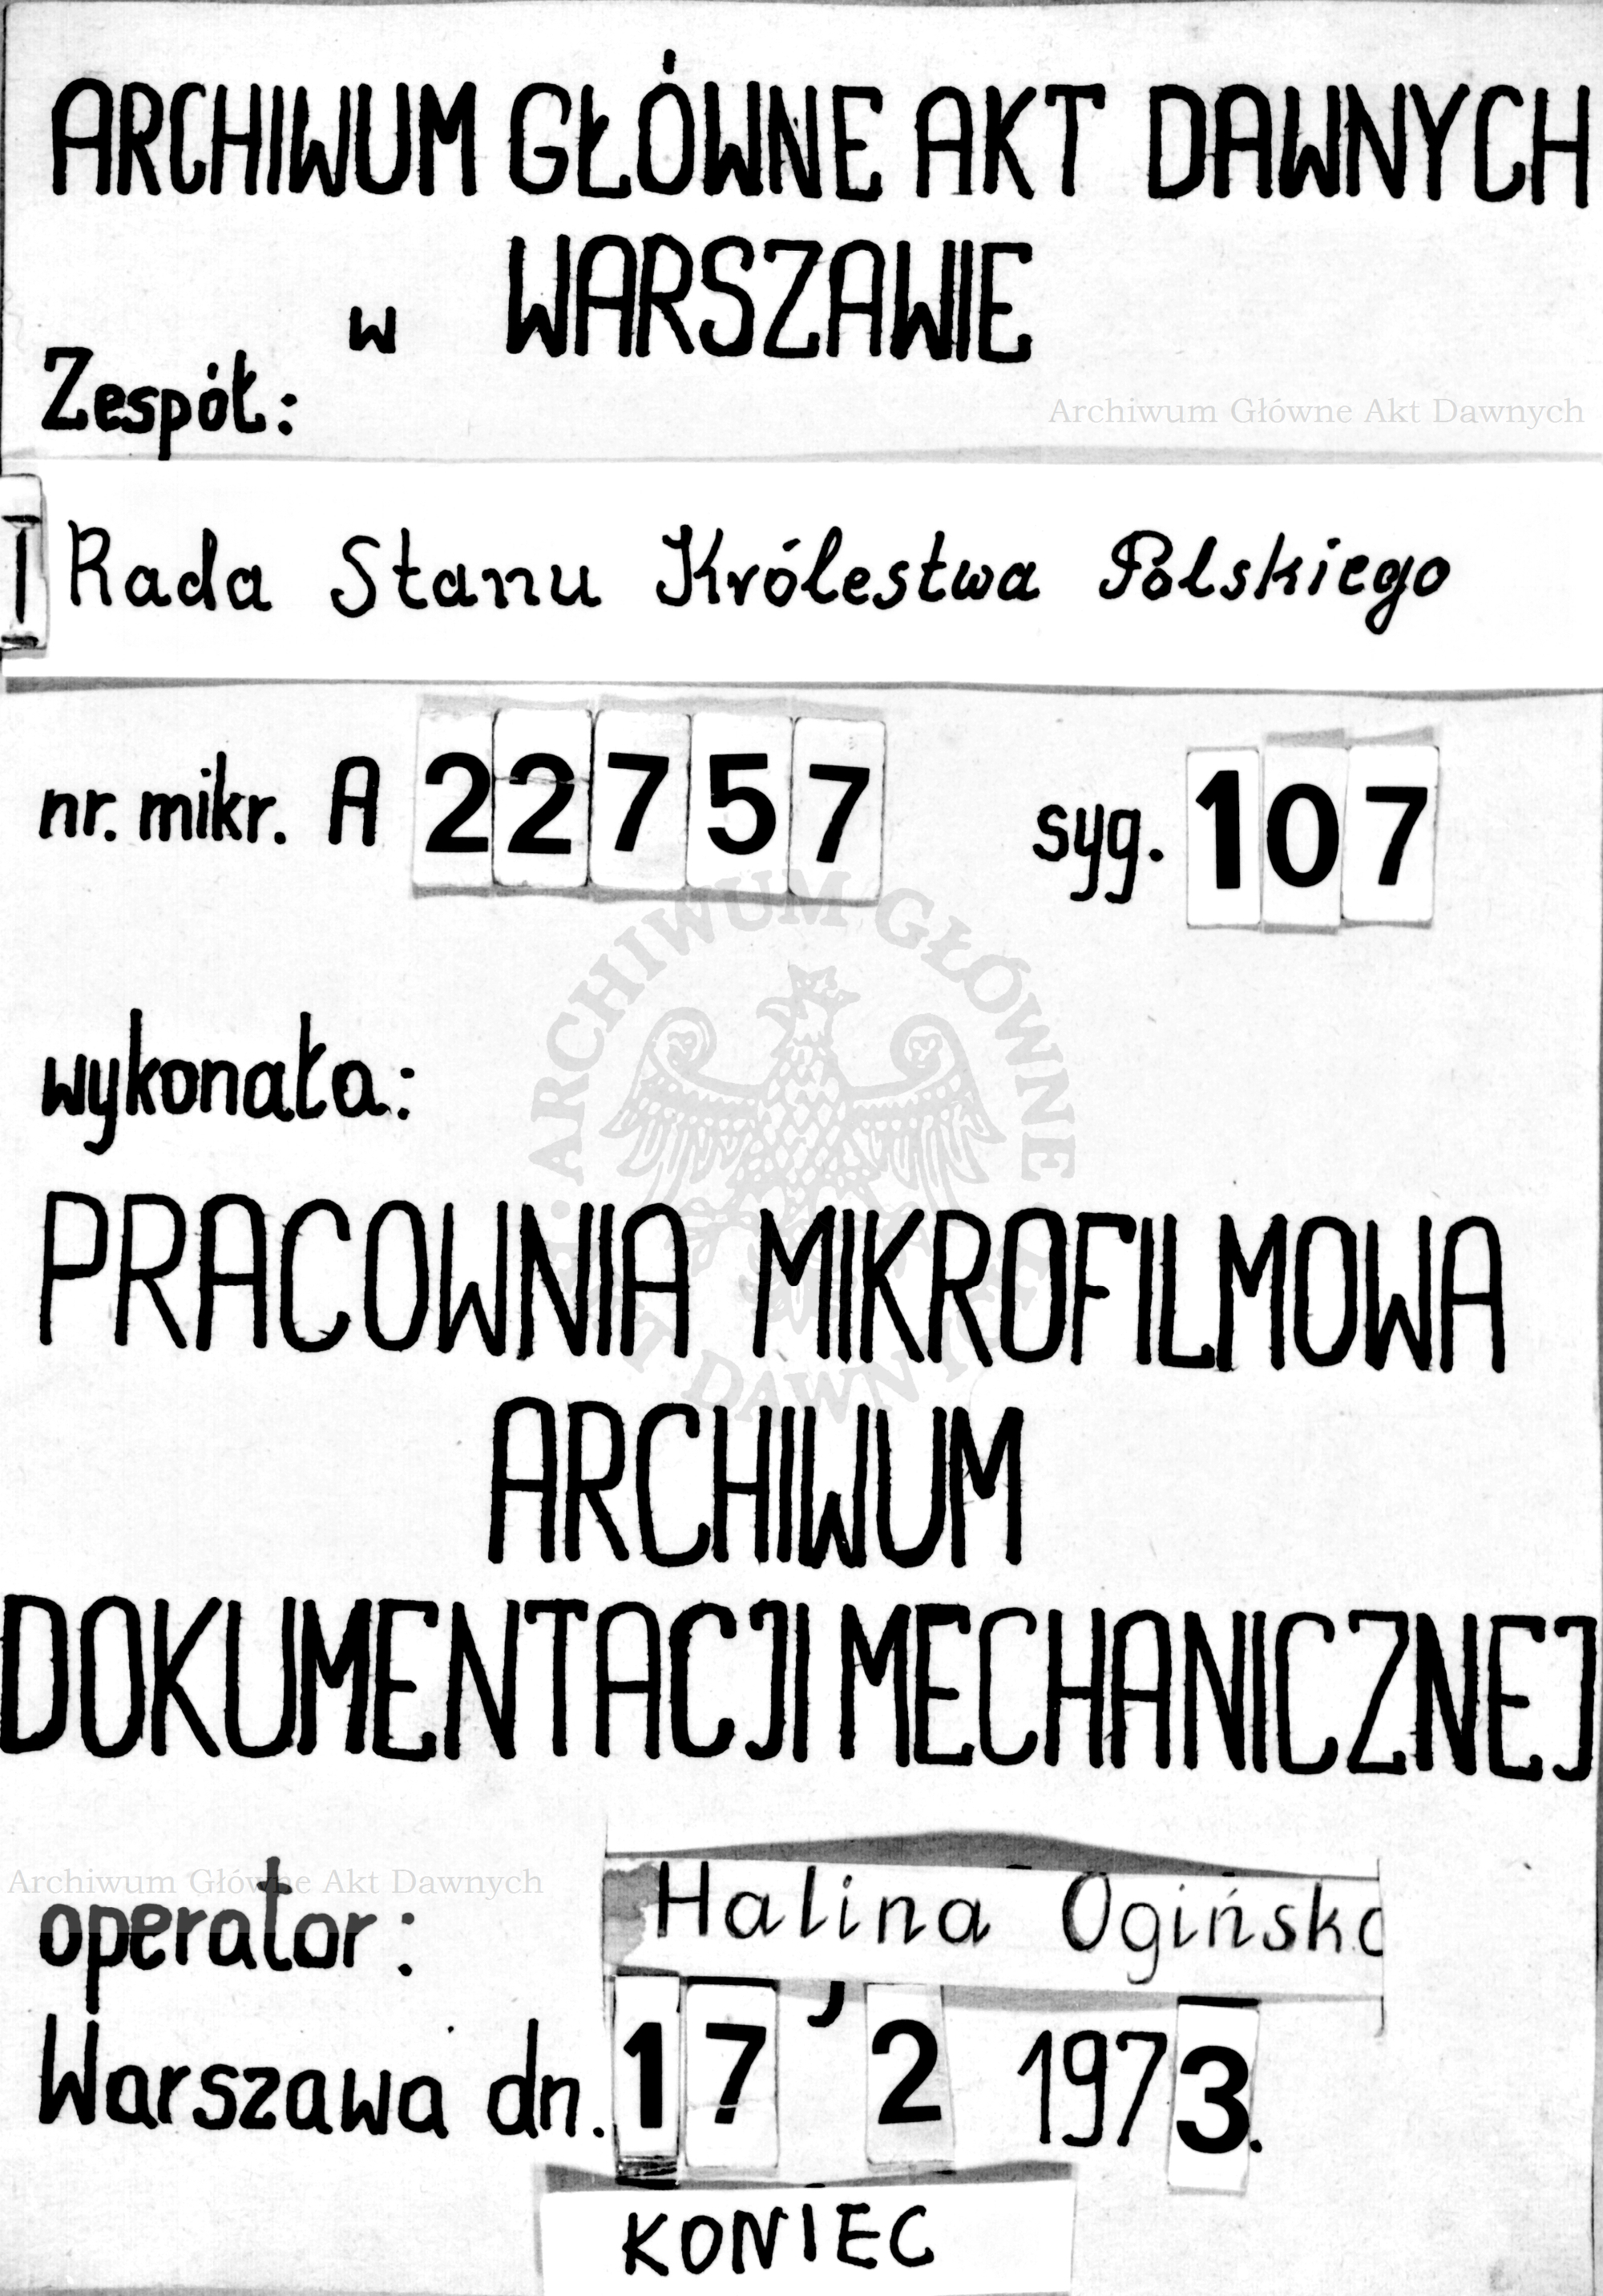 ARCHIWUM GŁÓWNE AKT DAWNYCH
w WARSZAWIE
Zespół:
Archiwum Główne Akt Dawnych
I Rada Stanu Królestwa Polskiego
nr. mikr. A 22757 syg. 107
ARCHIWUM GŁÓWNE AKT DAWNYCH
wykonała:
PRACOWNIA MIKROFILMOWA
ARCHIWUM
DOKUMENTACJI MECHANICZNEJ
Archiwum Główne Akt Dawnych
operator: Halina Ogińska
Warszawa dn. 17 2 1973.
KONIEC